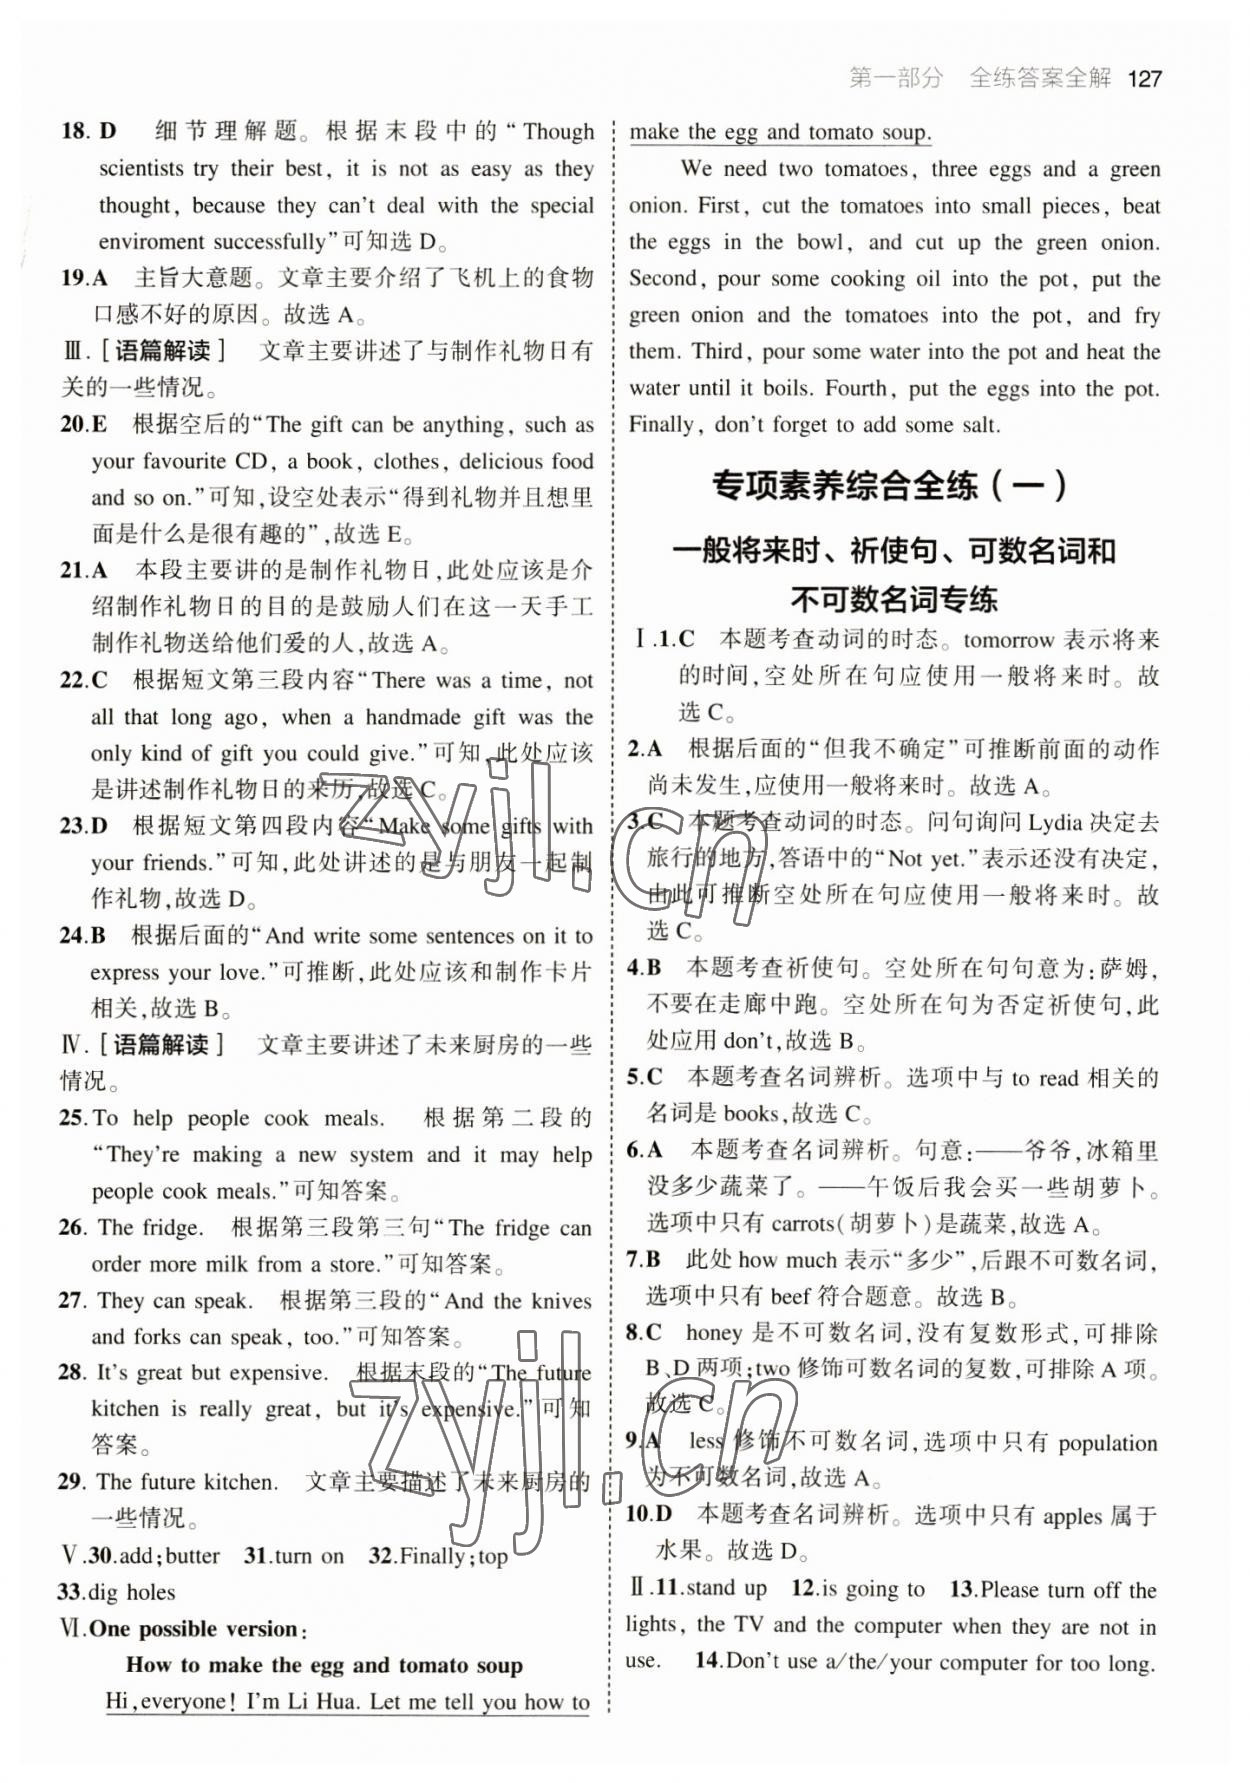 第一部分　全练答案全解　127
18. D　细节理解题。根据末段中的“Though
scientists try their best, it is not as easy as they
thought, because they can't deal with the special
enviroment successfully”可知选 D。
19. A　主旨大意题。文章主要介绍了飞机上的食物
口感不好的原因。故选 A。
Ⅲ. [语篇解读]　文章主要讲述了与制作礼物日有
关的一些情况。
20. E　根据空后的“The gift can be anything, such as
your favourite CD, a book, clothes, delicious food
and so on.”可知,设空处表示“得到礼物并且想里
面是什么是很有趣的”,故选 E。
21. A　本段主要讲的是制作礼物日,此处应该是介
绍制作礼物日的目的是鼓励人们在这一天手工
制作礼物送给他们爱的人,故选 A。
22. C　根据短文第三段内容“There was a time, not
all that long ago, when a handmade gift was the
only kind of gift you could give.”可知,此处应该
是讲述制作礼物日的来历,故选 C。
23. D　根据短文第四段内容“Make some gifts with
your friends.”可知,此处讲述的是与朋友一起制
作礼物,故选 D。
24. B　根据后面的“And write some sentences on it to
express your love.”可推断,此处应该和制作卡片
相关,故选 B。
Ⅳ. [语篇解读]　文章主要讲述了未来厨房的一些
情况。
25. To help people cook meals.　根据第二段的
“They're making a new system and it may help
people cook meals.”可知答案。
26. The fridge.　根据第三段第三句“The fridge can
order more milk from a store.”可知答案。
27. They can speak.　根据第三段的“And the knives
and forks can speak, too.”可知答案。
28. It's great but expensive.　根据末段的“The future
kitchen is really great, but it's expensive.”可知
答案。
29. The future kitchen.　文章主要描述了未来厨房的
一些情况。
Ⅴ. 30. add; butter　31. turn on　32. Finally; top
33. dig holes
Ⅵ. One possible version:
How to make the egg and tomato soup
Hi, everyone! I'm Li Hua. Let me tell you how to
make the egg and tomato soup.
We need two tomatoes, three eggs and a green
onion. First, cut the tomatoes into small pieces, beat
the eggs in the bowl, and cut up the green onion.
Second, pour some cooking oil into the pot, put the
green onion and the tomatoes into the pot, and fry
them. Third, pour some water into the pot and heat the
water until it boils. Fourth, put the eggs into the pot.
Finally, don't forget to add some salt.
专项素养综合全练(一)
一般将来时、祈使句、可数名词和
不可数名词专练
Ⅰ. 1. C　本题考查动词的时态。tomorrow 表示将来
的时间,空处所在句应使用一般将来时。故
选 C。
2. A　根据后面的“但我不确定”可推断前面的动作
尚未发生,应使用一般将来时。故选 A。
3. C　本题考查动词的时态。问句询问 Lydia 决定去
旅行的地方,答语中的“Not yet.”表示还没有决定,
由此可推断空处所在句应使用一般将来时。故
选 C。
4. B　本题考查祈使句。空处所在句句意为:萨姆,
不要在走廊中跑。空处所在句为否定祈使句,此
处应用 don't,故选 B。
5. C　本题考查名词辨析。选项中与 to read 相关的
名词是 books,故选 C。
6. A　本题考查名词辨析。句意:——爷爷,冰箱里
没多少蔬菜了。——午饭后我会买一些胡萝卜。
选项中只有 carrots(胡萝卜)是蔬菜,故选 A。
7. B　此处 how much 表示“多少”,后跟不可数名词,
选项中只有 beef 符合题意。故选 B。
8. C　honey 是不可数名词,没有复数形式,可排除
B、D 两项;two 修饰可数名词的复数,可排除 A 项。
故选 C。
9. A　less 修饰不可数名词,选项中只有 population
为不可数名词,故选 A。
10. D　本题考查名词辨析。选项中只有 apples 属于
水果。故选 D。
Ⅱ. 11. stand up　12. is going to　13. Please turn off the
lights, the TV and the computer when they are not in
use.　14. Don't use a/the/your computer for too long.
zyjl.cn
zyjl.cn